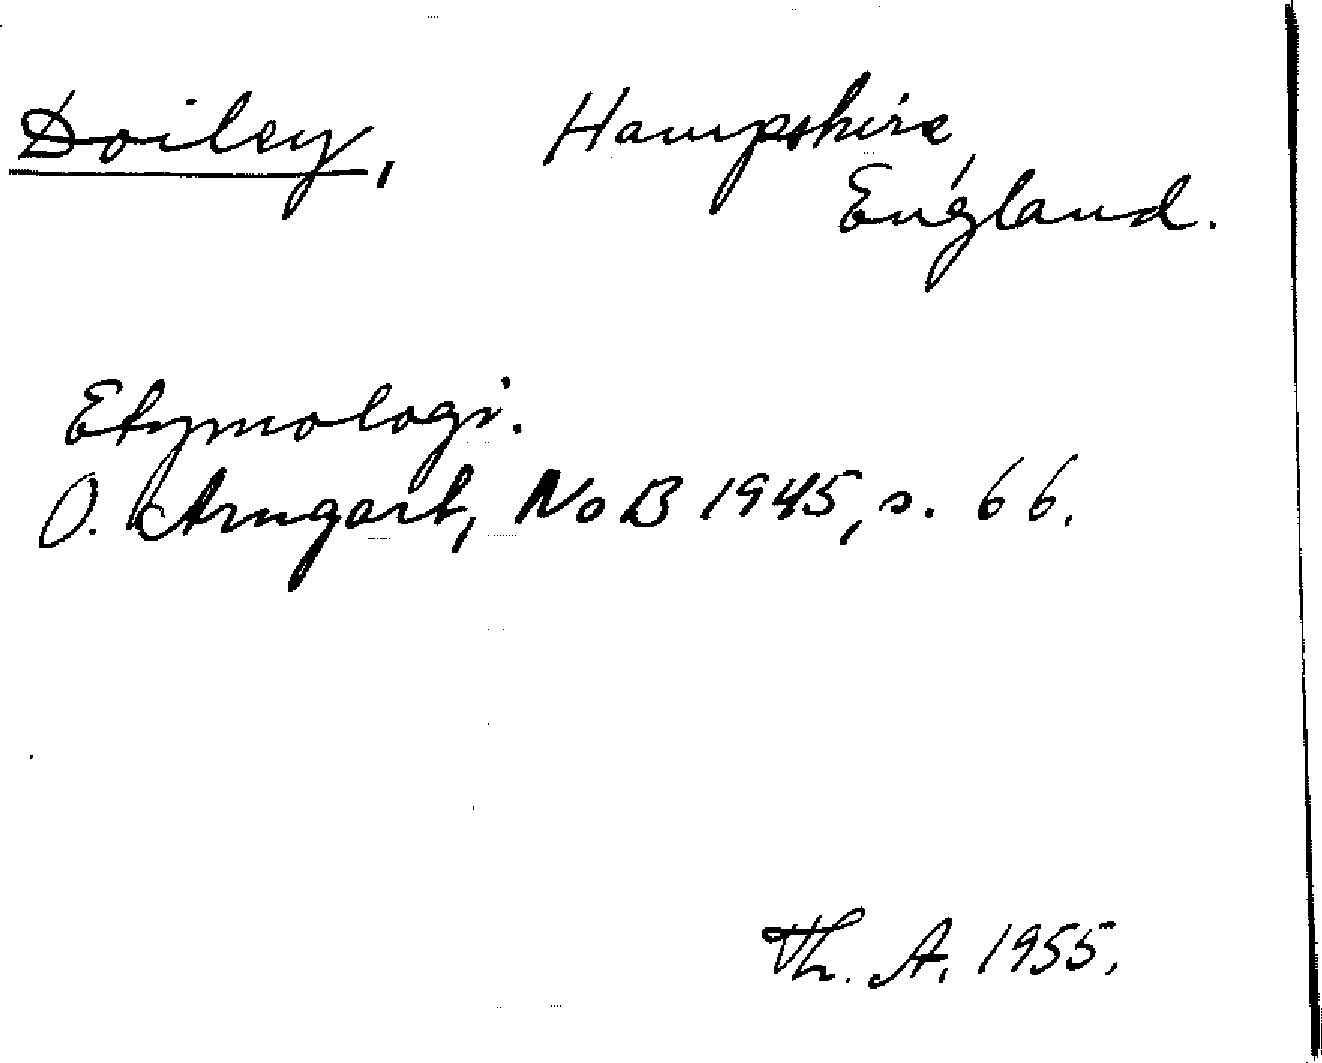 Doiley, Hampshire,
England.
Etymologi.
O. Arngart, NoB 1945, s. 66.
Th. A. 1955.